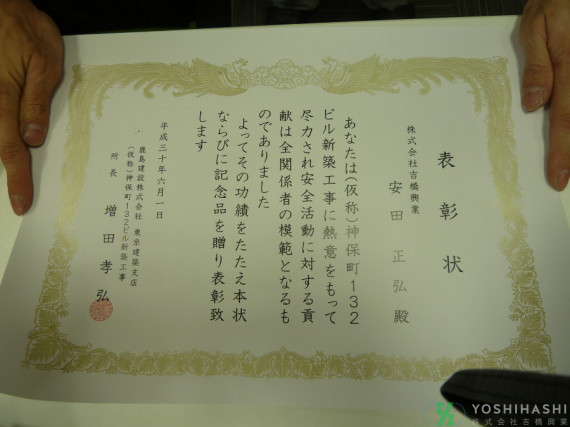 表彰状
株式会社吉橋興業
安田正弘殿
あなたは(仮称)神保町132
ビル新築工事に熱意をもって
尽力され安全活動に対する貢
献は全関係者の模範となるも
のでありました
よってその功績をたたえ本状
ならびに記念品を贈り表彰致
します
平成三十年六月一日
鹿島建設株式会社 東京建築支店
(仮称)神保町132ビル新築工事
所長 増田孝弘
YOSHIHASHI
株式会社吉橋興業